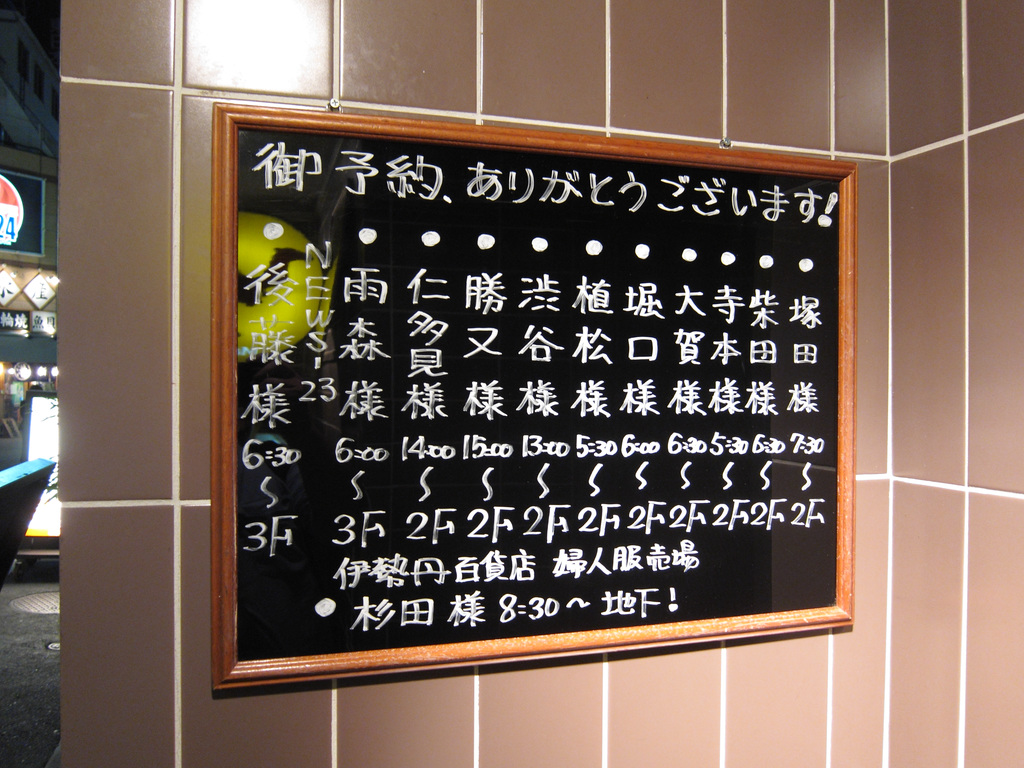 御予約、ありがとうございます!
● 塚田様 7:30 〜 2F
● 柴田様 6:30 〜 2F
● 寺本様 5:30 〜 2F
● 大賀様 6:30 〜 2F
● 堀口様 6:00 〜 2F
● 植松様 5:30 〜 2F
● 渋谷様 13:00 〜 2F
● 勝又様 15:00 〜 2F
● 仁多見様 14:00 〜 2F
● 雨森様 6:00 〜 3F
NEWS・23
● 後藤様 6:30 〜 3F
伊勢丹百貨店 婦人服売場
● 杉田様 8:30〜地下!
24